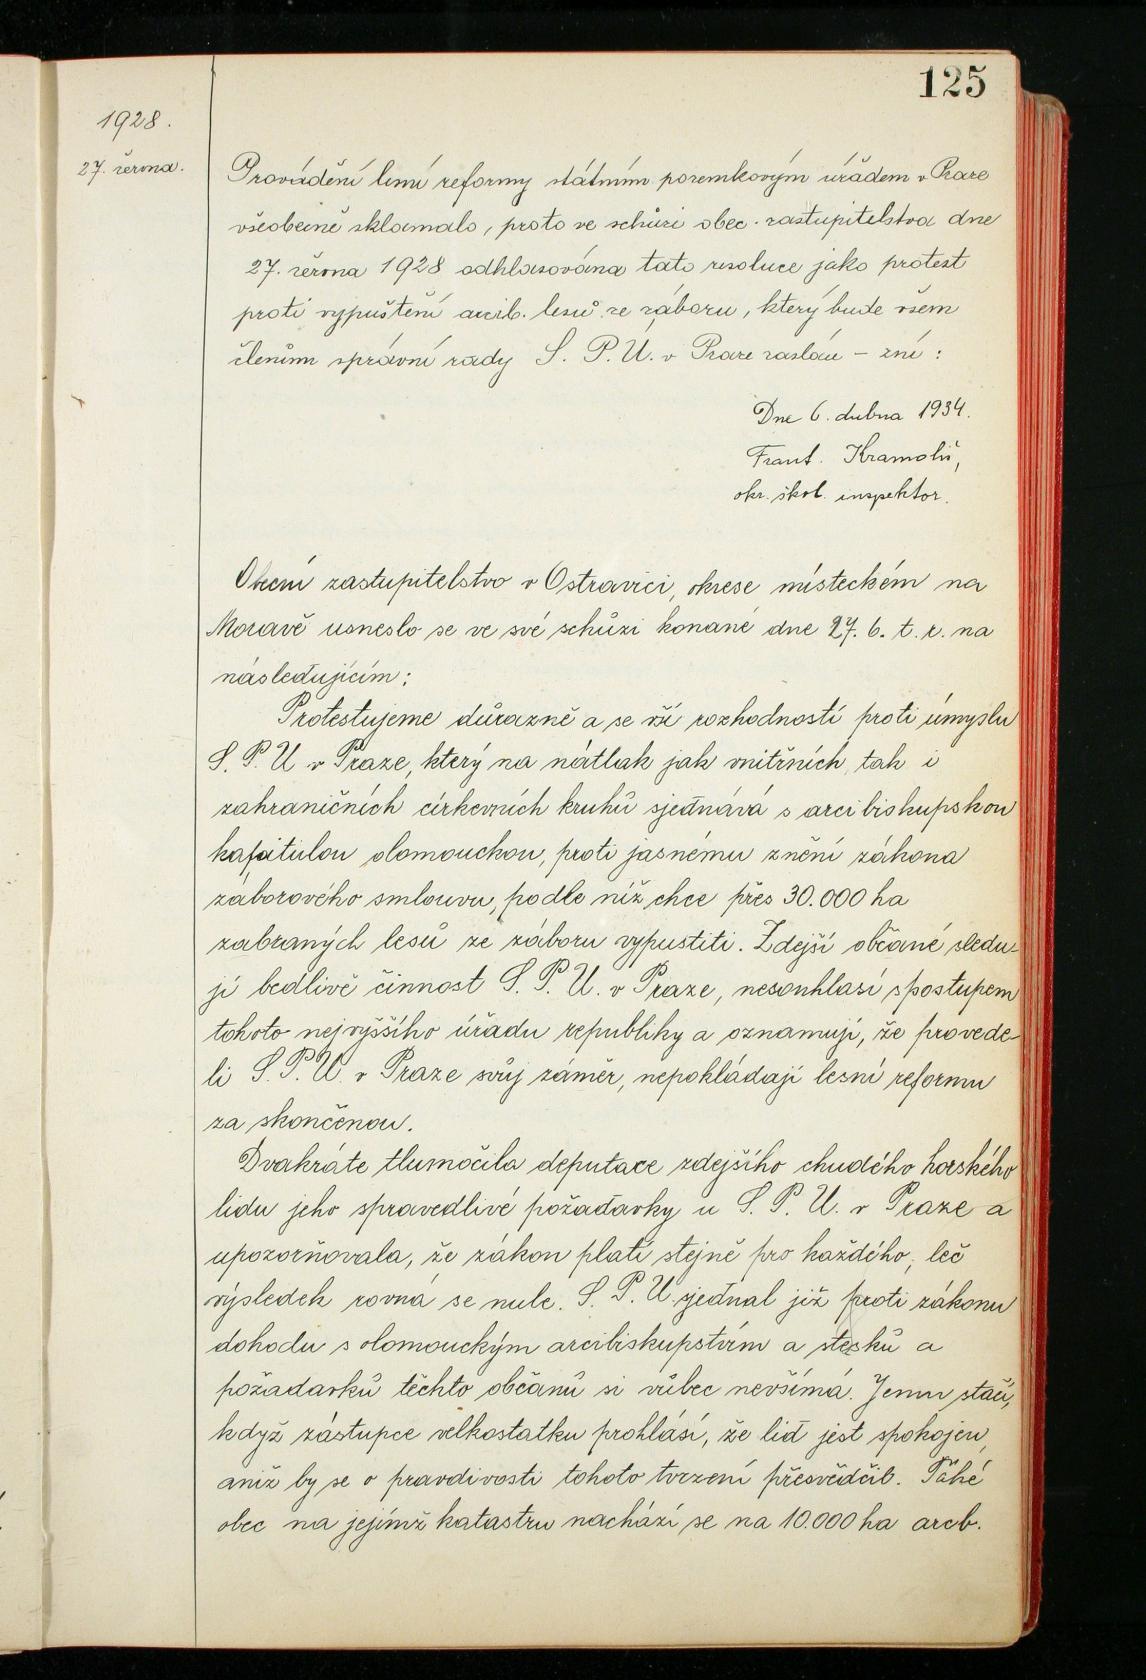 125
1928.
27. června.
Provádění lesní reformy státním pozemkovým úřadem v Praze
všeobecně sklamalo, proto ve schůzi obec. zastupitelstva dne
27. června 1928 odhlasována tato resoluce jako protest
proti vypuštění arcib. lesů ze záboru, který bude všem
členům správní rady S. P. U. v Praze zaslán – zní:
Dne 6. dubna 1934.
Frant. Kramoliš,
okr. škol. inspektor.
Obecní zastupitelstvo v Ostravici, okrese místeckém na
Moravě usneslo se ve své schůzi konané dne 27. 6. t. r. na
následujícím:
Protestujeme důrazně a se vší rozhodností proti úmyslu
S. P. U v Praze, který na nátlak jak vnitřních, tak i
zahraničních církevních kruhů sjednává s arcibiskupskou
kapitulou olomouckou, proti jasnému znění zákona
záborového smlouvu, podle níž chce přes 30.000 ha
zabraných lesů ze záboru vypustiti. Zdejší občané sledu-
jí bedlivě činnost S. P. U. v Praze, nesouhlasí s postupem
tohoto nejvyššího úřadu republiky a oznamují, že provede-
li S. P. U. v Praze svůj záměr, nepokládají lesní reformu
za skončenou.
Dvakráte tlumočila deputace zdejšího chudého horského
lidu jeho spravedlivé požadavky u S. P. U. v Praze a
upozorňovala, že zákon platí stejně pro každého, leč
výsledek rovná se nule. S. P. U. sjednal již proti zákonu
dohodu s olomouckým arcibiskupstvím a stesků a
požadavků těchto občanů si vůbec nevšímá. Jemu stačí,
když zástupce velkostatku prohlásí, že lid jest spokojen,
aniž by se o pravdivosti tohoto tvrzení přesvědčil.
obec na jejímž katastru nachází se na 10.000 ha arcb.